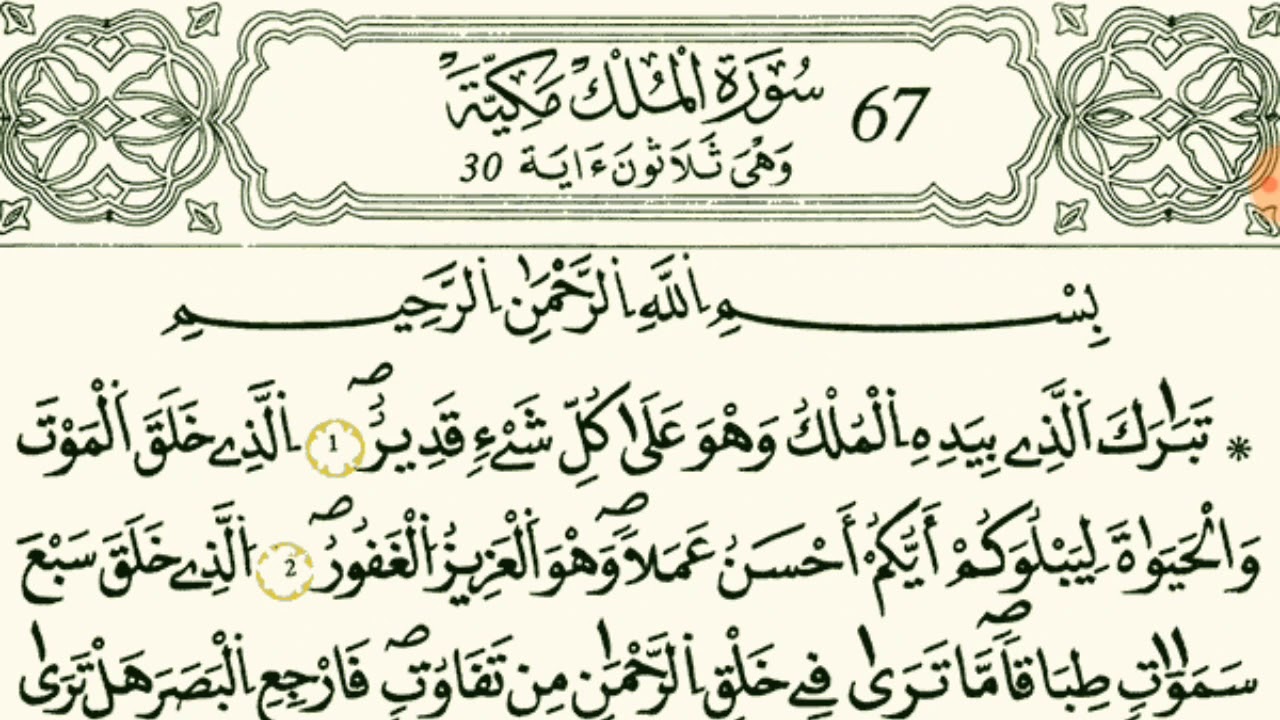 سُورَةُ الْمُلْكِ مَكِّيَّةٌ 67
وَهْىَ ثَلَاثُونَ ءَايَةً 30
بِسْمِ اِ۬للَّهِ اِ۬لرَّحْمَٰنِ اِ۬لرَّحِيمِ
* تَبَٰرَكَ اَ۬لَّذِے بِيَدِهِ اِ۬لْمُلْكُ وَهْوَ عَلَىٰ كُلِّ شَےْءٖ قَدِيرٌۖ 1 اِ۬لَّذِے خَلَقَ اَ۬لْمَوْتَ
وَالْحَيَوٰةَ لِيَبْلُوَكُمْ أَيُّكُمْ أَحْسَنُ عَمَلاٗۖ وَهْوَ اَ۬لْعَزِيزُ اُ۬لْغَفُورُۖ 2 اُ۬لَّذِے خَلَقَ سَبْعَ
سَمَٰوَٰتٖ طِبَاقاٗۖ مَّا تَرَىٰ فِے خَلْقِ اِ۬لرَّحْمَٰنِ مِن تَفَٰوُتٖۖ فَارْجِعِ اِ۬لْبَصَرَ هَلْ تَرَىٰ